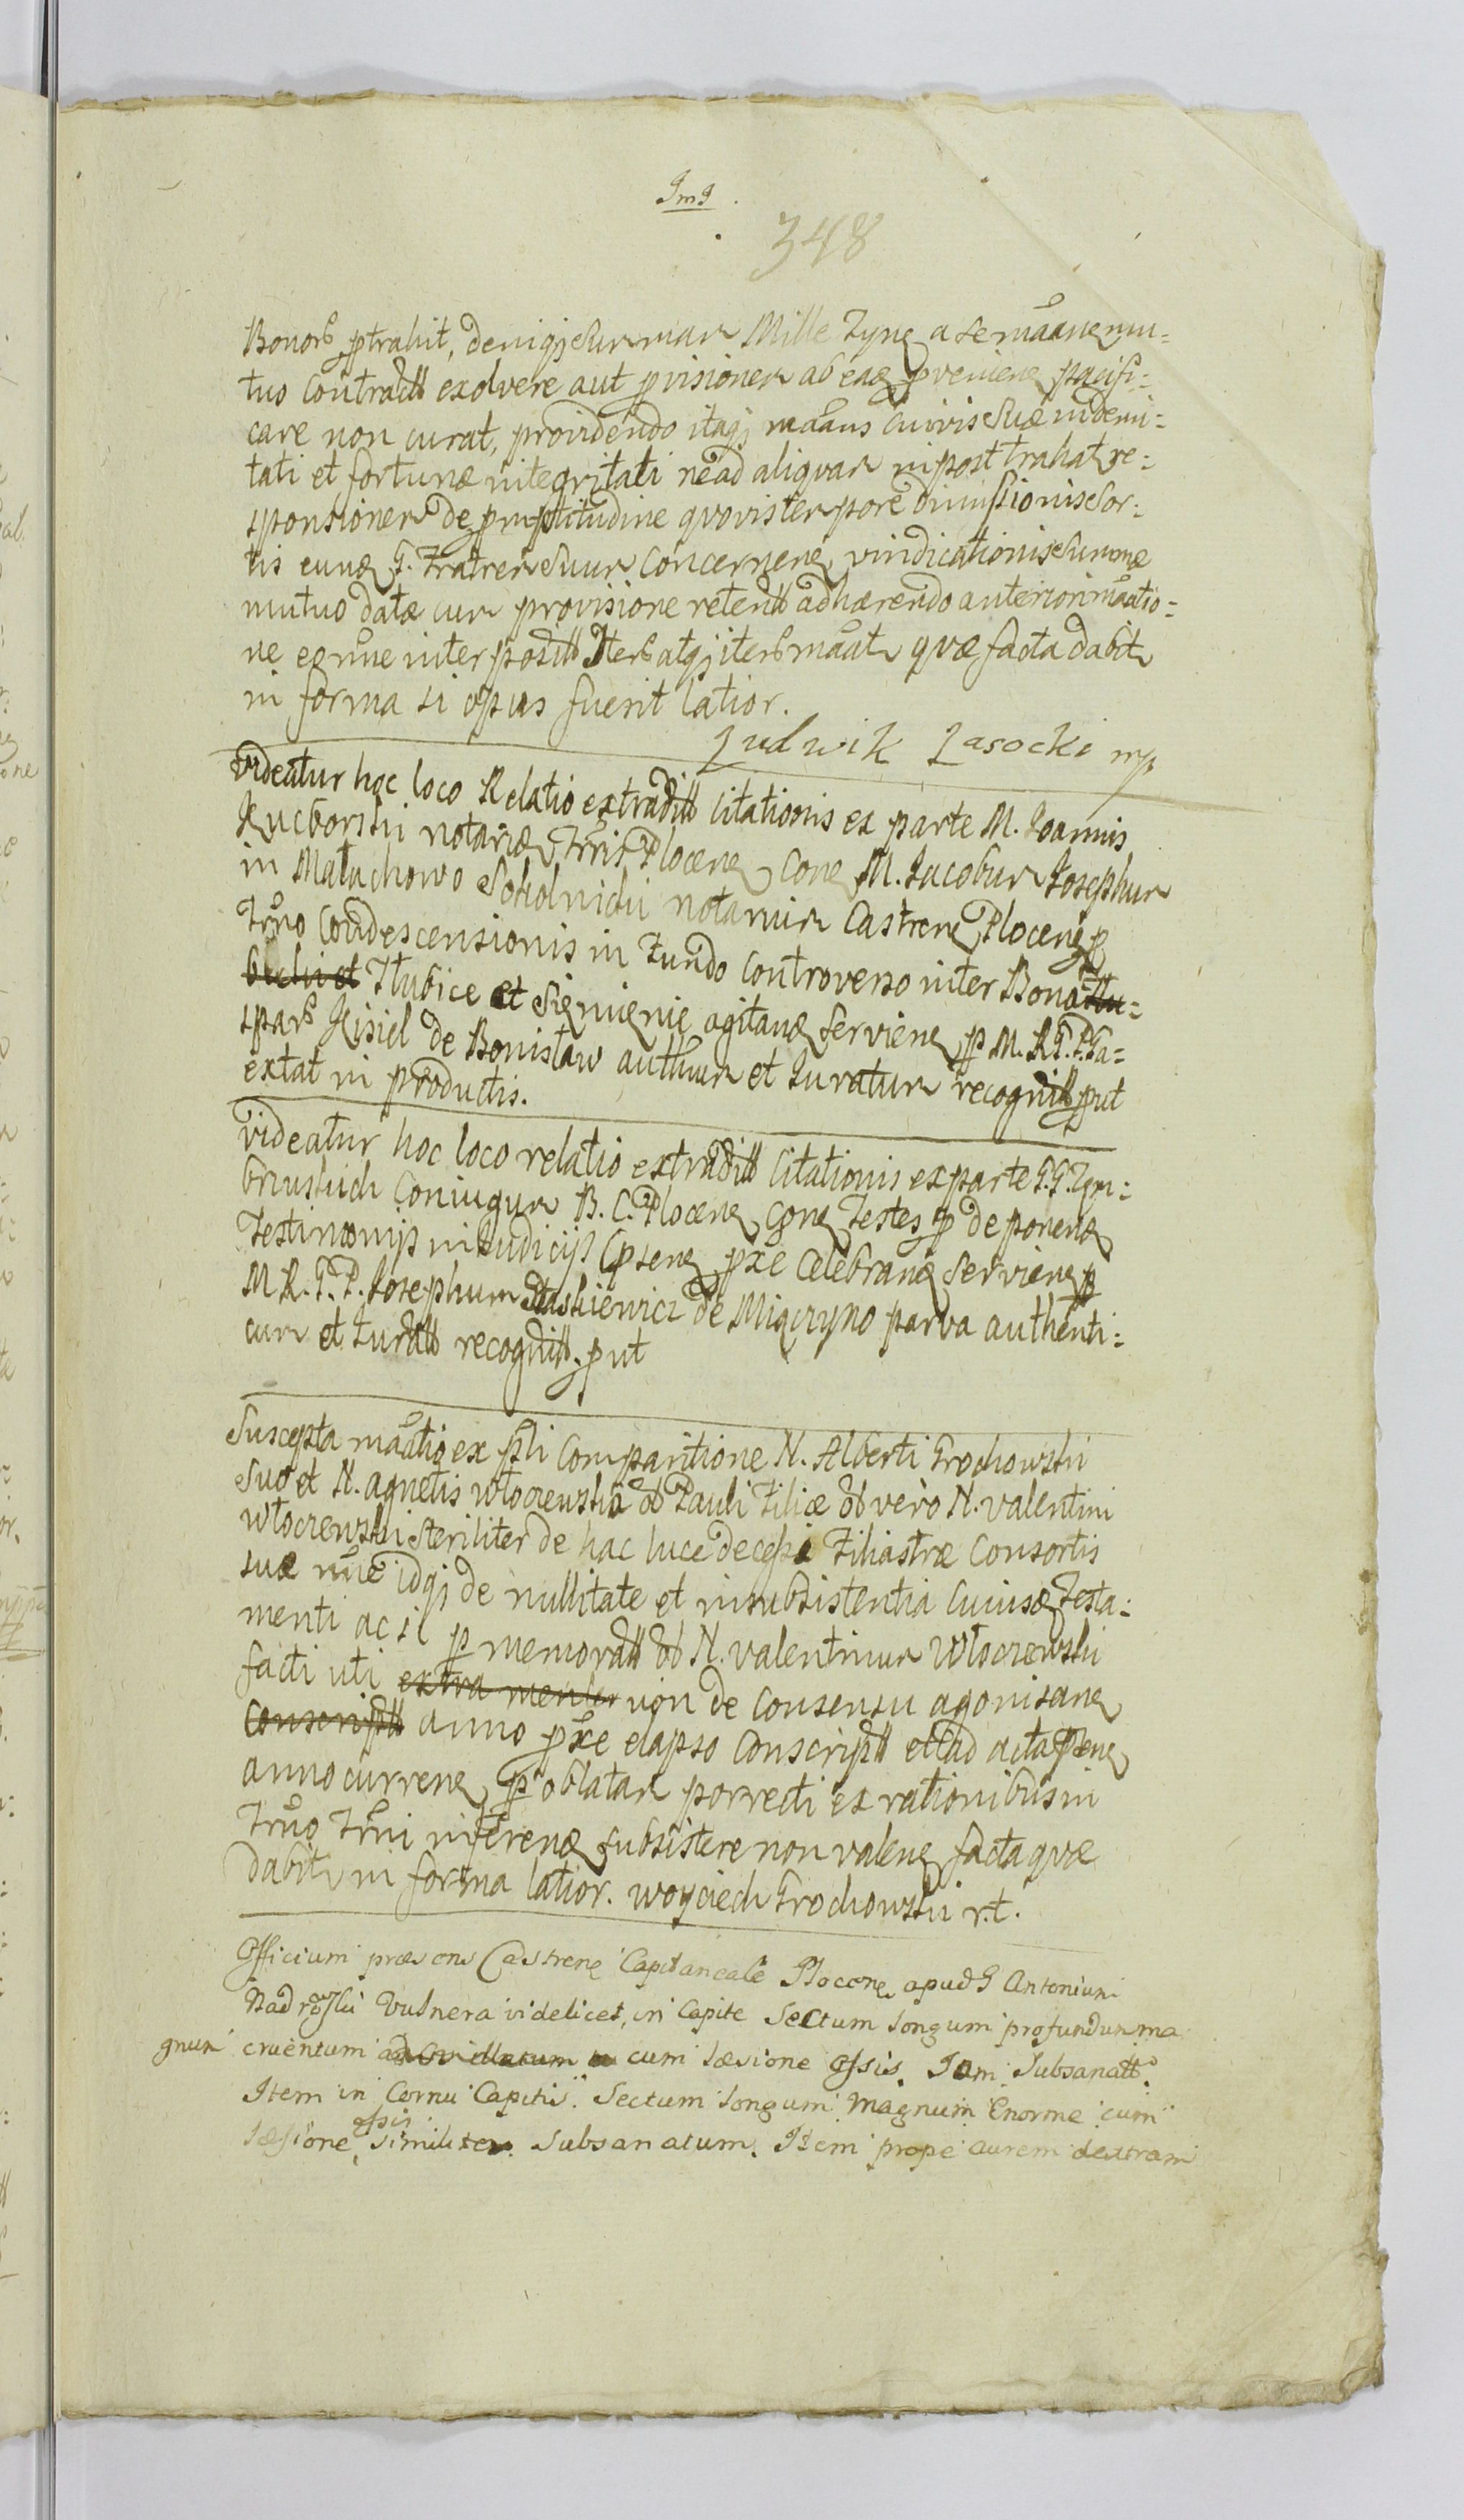 JmJ.
348
Bonorũ ptrahit, deniqj Summam Mille Tynę a se mãane mu=
tuo Contractt exolvere aut provisionem ab eaq proveniene pacifi=
care non curat, providendo itaqj mãans Cuivis Suæ indemni=
tati et fortunæ integritati ne ad aliquam in post trahat re=
sponsionem de promptitudine quovis tempore dimissionis Sor=
tis eunq G. Fratrem Suum Concernenę vindicationis Summæ
mutuo datæ cum provisione retentt adhærendo anteriori mãatio=
ne eo nñe interpositt Iterũ atqj iterũ mãat quæ facta dabit
in forma si opus fuerit latior.
Ludwik Lasocki mp
Videatur hoc loco Relatio extraditt Citationis ex parte M. Joannis
Kucborski notarię Trris Plocenę Cone M. Jacobum Josephum
in Małuchowo Sokolnicki notarium Castrenę Plocenę p
Trño Condescensionis in Fundo Controverso inter Bona Hu=
bichi et Hubice et Sięmięnie agitanę Servienę p M. R. G. P. Ga=
sparũ Kisiel de Bonisław authum et Juratum recognitt put
extat in productis.
Videatur hoc loco relatio extraditt Citationis ex parte G. G. Zem=
brzuskich Coniugum B. C. Plocenę Cone Testes p deponenę
Testimonijs in Judicijs Cpsenę pxe Celebranę Servienę p
M. R. G. P. Josephum Staskiewicz de Miączyno parva authenti=
cum et Juratt recognitt. put
Suscepta mãatio ex psli Comparitione N. Alberti Grochowski
Suo et N. Agnetis Włoczewska ob Pauli Filiæ ob vero N. Valentini
Włoczewski Steriliter de hac luce decessi Filiastræ Consortis
suæ nñe idqj de nullitate et insubsistentia Cuiusq Testa=
menti ac si p memoratt ob N. Valentinum Włoczewski
facti uti extra mentem non de Consensu agonisanę
Conscriptt anno pxe elapso Conscriptt et ad acta Plenę
anno currenę p oblatam porrecti ex rationibus in
Trño Trñi inferenę subsistere non valenę facta quæ
dabit in forma latior. Woyciech Grochowski r.t.
Officium præsens Castrenę Capitaneale Plocenę apud G Antonium
Nadroski Vulnera videlicet, in Capite Sectum longum profundum ma
gnum cruentum ad Cividlatum cum læsione ossis. Jam Subsanatt.
Item in Cornu Capitis. Sectum longum Magnum Enorme cum
læsione ossis similiter Subsanatum. Item prope aurem dextram